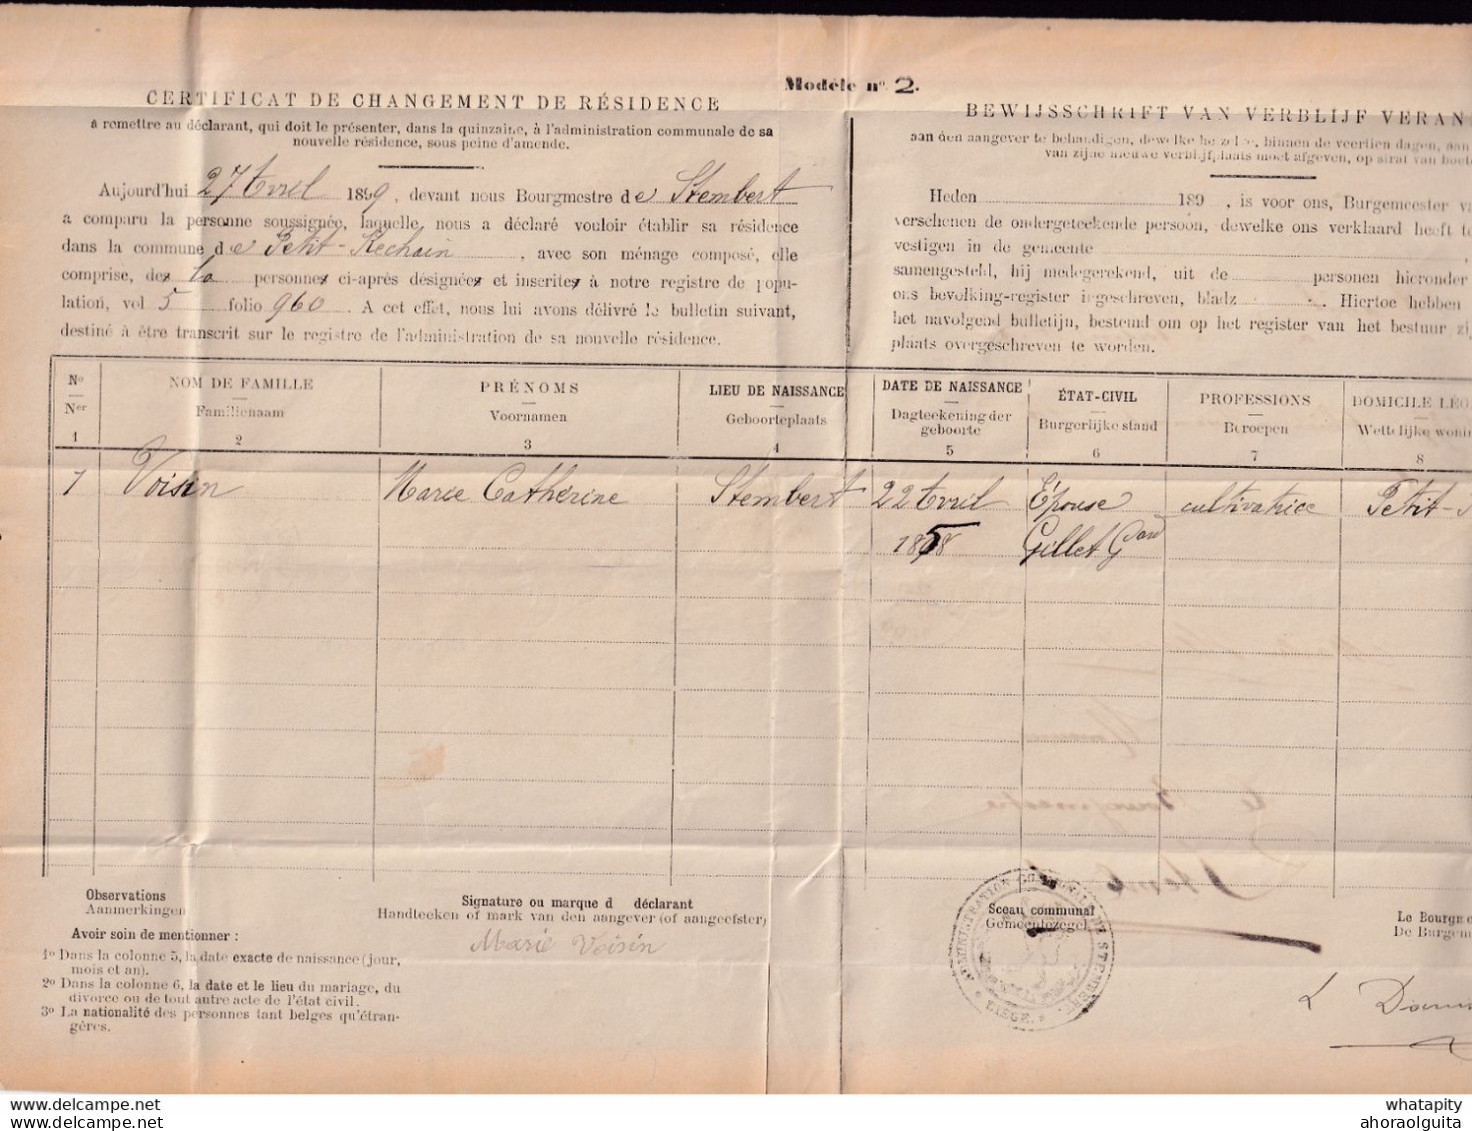 Modèle n° 2.
CERTIFICAT DE CHANGEMENT DE RÉSIDENCE
à remettre au déclarant, qui doit le présenter, dans la quinzaine, à l'administration communale de sa
nouvelle résidence, sous peine d'amende.
Aujourd'hui 27 Avril 1899, devant nous Bourgmestre de Stembert
a comparu la personne soussignée, laquelle, nous a déclaré vouloir établir sa résidence
dans la commune de Petit-Rechain, avec son ménage composé, elle
comprise, des la personnes ci-après désignées et inscrites à notre registre de popu-
lation, vol 5 folio 960. A cet effet, nous lui avons délivré le bulletin suivant,
destiné à être transcrit sur le registre de l'administration de sa nouvelle résidence.
BEWIJSSCHRIFT VAN VERBLIJF VERAN
aan den aangever te behandigen, dewelke hetzelve, binnen de veertien dagen, aan
van zijne nieuwe verblijfplaats moet afgeven, op straf van boete
Heden 189 , is voor ons, Burgemeester va
verschenen de ondergeteekende persoon, dewelke ons verklaard heeft te
vestigen in de gemeente ,
samengesteld, hij medegerekend, uit de personen hieronder
ons bevolking-register ingeschreven, bladz . Hiertoe hebben
het navolgend bulletijn, bestemd om op het register van het bestuur zij
plaats overgeschreven te worden.
No Ner 1
NOM DE FAMILLE Familienaam 2
PRÉNOMS Voornamen 3
LIEU DE NAISSANCE Geboorteplaats 4
DATE DE NAISSANCE Dagteekening der geboorte 5
ÉTAT-CIVIL Burgerlijke stand 6
PROFESSIONS Beroepen 7
DOMICILE LÉG Wettelijke woni 8
1 Voisin Marie Catherine Stembert 22 Avril Épouse cultivatrice Petit-
1858 Gillet Gard
Observations
Aanmerkingen
Avoir soin de mentionner :
1° Dans la colonne 5, la date exacte de naissance (jour,
mois et an).
2° Dans la colonne 6, la date et le lieu du mariage, du
divorce ou de tout autre acte de l'état civil.
3° La nationalité des personnes tant belges qu'étran-
gères.
Signature ou marque d déclarant
Handteeken of mark van den aangever (of aangeefster)
Marie Voisin
Sceau communal
Gemeentezegel
ADMINISTRATION COMMUNALE DE STEMBERT
LIEGE
Le Bourgm
De Burgem
L Dam
whatapity
whatapity
ahoraolguita
ahoraolguita